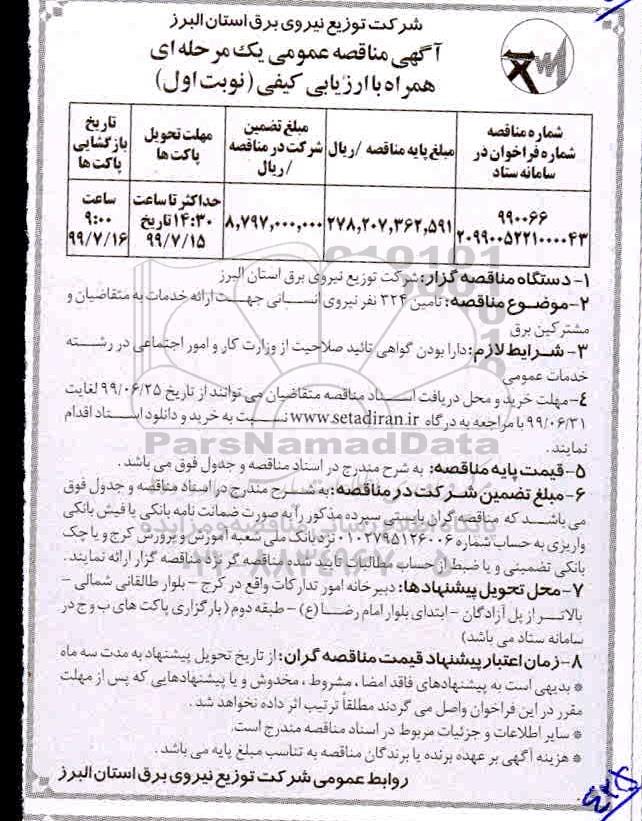 شرکت توزیع نیروی برق استان البرز
آگهی مناقصه عمومی یک مرحله ای
همراه با ارزیابی کیفی (نوبت اول)
شماره مناقصه شماره فراخوان در سامانه ستاد | مبلغ پایه مناقصه /ریال | مبلغ تضمین شرکت در مناقصه /ریال | مهلت تحویل پاکت ها | تاریخ بازگشایی پاکت ها
۹۹۰۰۶۶ ۲۰۹۹۰۰۵۲۲۱۰۰۰۰۴۳ | ۲۷۸,۲۰۷,۳۶۲,۵۹۱ | ۸,۷۹۷,۰۰۰,۰۰۰ | حداکثر تا ساعت ۱۴:۳۰ تاریخ ۹۹/۷/۱۵ | ساعت ۹:۰۰ ۹۹/۷/۱۶
۱- دستگاه مناقصه گزار: شرکت توزیع نیروی برق استان البرز
۲- موضوع مناقصه: تامین ۳۲۴ نفر نیروی انسانی جهت ارائه خدمات به متقاضیان و
مشترکین برق
۳- شرایط لازم: دارا بودن گواهی تائید صلاحیت از وزارت کار و امور اجتماعی در رشته
خدمات عمومی
۴- مهلت خرید و محل دریافت اسناد مناقصه متقاضیان می توانند از تاریخ ۹۹/۰۶/۲۵ لغایت
۹۹/۰۶/۳۱ با مراجعه به درگاه www.setadiran.ir نسبت به خرید و دانلود اسناد اقدام
نمایند.
ParsNamadData
۵- قیمت پایه مناقصه: به شرح مندرج در اسناد مناقصه و جدول فوق می باشد.
۶- مبلغ تضمین شرکت در مناقصه: به شرح مندرج در اسناد مناقصه و جدول فوق
می باشد که مناقصه گران بایستی سپرده مذکور را به صورت ضمانت نامه بانکی یا فیش بانکی
واریزی به حساب شماره ۰۱۰۲۷۹۵۱۲۶۰۰۶ نزد بانک ملی شعبه آموزش و پرورش کرج و یا چک
بانکی تضمینی و یا ضبط از حساب مطالبات تایید شده مناقصه گر نزد مناقصه گزار ارائه نمایند.
۷- محل تحویل پیشنهادها: دبیرخانه امور تدارکات واقع در کرج - بلوار طالقانی شمالی -
بالاتر از پل آزادگان - ابتدای بلوار امام رضا (ع) - طبقه دوم (بارگزاری پاکت های ب و ج در
سامانه ستاد می باشد)
۸- زمان اعتبار پیشنهاد قیمت مناقصه گران: از تاریخ تحویل پیشنهاد به مدت سه ماه
* بدیهی است به پیشنهادهای فاقد امضا، مشروط، مخدوش و یا پیشنهادهایی که پس از مهلت
مقرر در این فراخوان واصل می گردند مطلقاً ترتیب اثر داده نخواهد شد.
* سایر اطلاعات و جزئیات مربوط در اسناد مناقصه مندرج است.
* هزینه آگهی بر عهده برنده یا برندگان مناقصه به تناسب مبلغ پایه می باشد.
روابط عمومی شرکت توزیع نیروی برق استان البرز